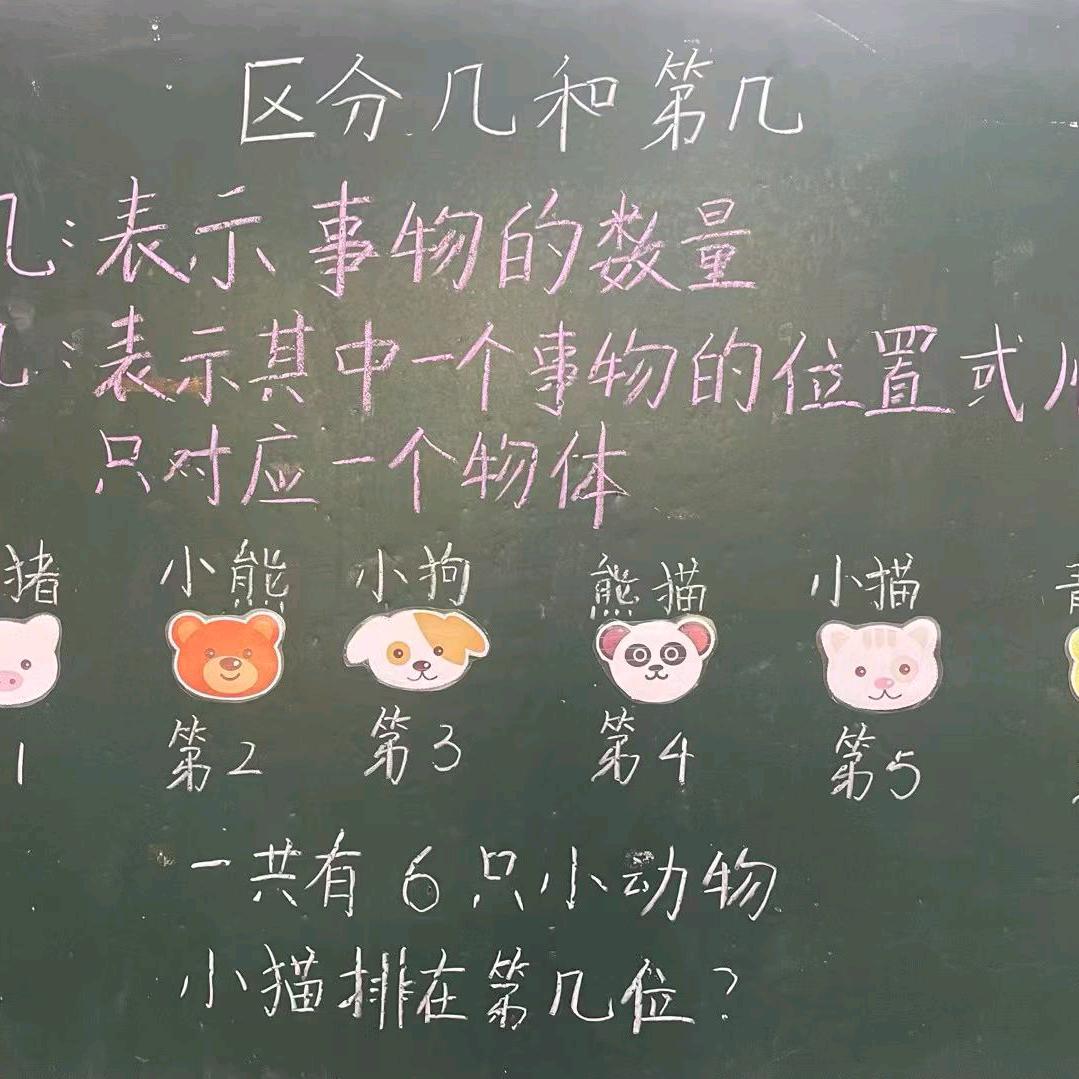 区分几和第几
几:表示事物的数量
几:表示其中一个事物的位置或
只对应一个物体
猪 小熊 小狗 熊猫 小猫
1 第2 第3 第4 第5
一共有6只小动物
小猫排在第几位?